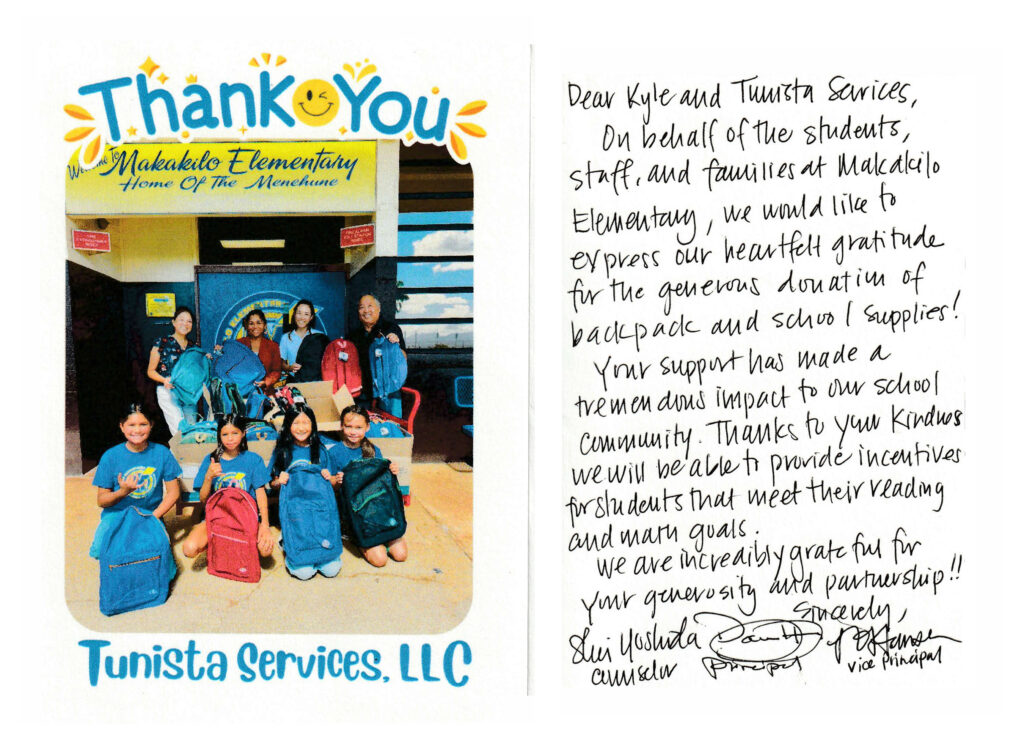 Thank You
Welcome To
Makakilo Elementary
Home Of The Menehune
Tunista Services, LLC
Dear Kyle and Tunista Services,
On behalf of the students,
staff, and families at Makakilo
Elementary, we would like to
express our heartfelt gratitude
for the generous donation of
backpack and school supplies!
Your support has made a
tremendous impact to our school
community. Thanks to your kindness
we will be able to provide incentives
for students that meet their reading
and math goals.
We are incredibly grateful for
your generosity and partnership!!
Sincerely,
Yoshida
counselor
principal
vice principal